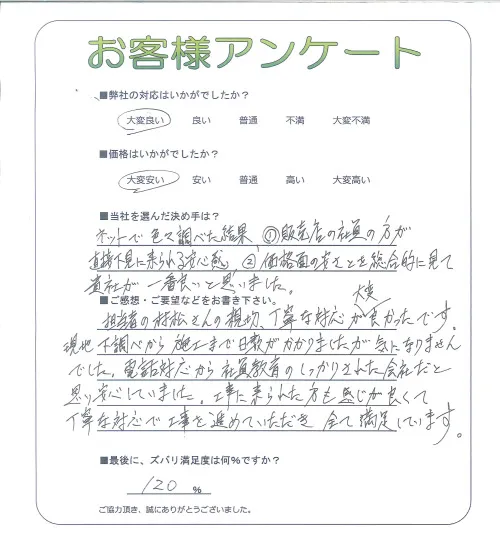 お客様アンケート
■弊社の対応はいかがでしたか？
大変良い 良い 普通 不満 大変不満
■価格はいかがでしたか？
大変安い 安い 普通 高い 大変高い
■当社を選んだ決め手は？
ネットで色々調べた結果 ①販売店の社員の方が
直接下見に来られる安心感 ②価格面の安さとを総合的に見て
貴社が一番良いと思いました。
■ご感想・ご要望などをお書き下さい。
担当者の村松さんの親切、丁寧な対応が大変良かったです。
現地下調べから施工まで日数がかかりましたが気になりません
でした。電話対応から社員教育のしっかりされた会社だと
思い安心していました。工事に来られた方も感じが良くて
丁寧な対応で工事を進めていただき全て満足しています。
■最後に、ズバリ満足度は何％ですか？
120 ％
ご協力頂き、誠にありがとうございました。